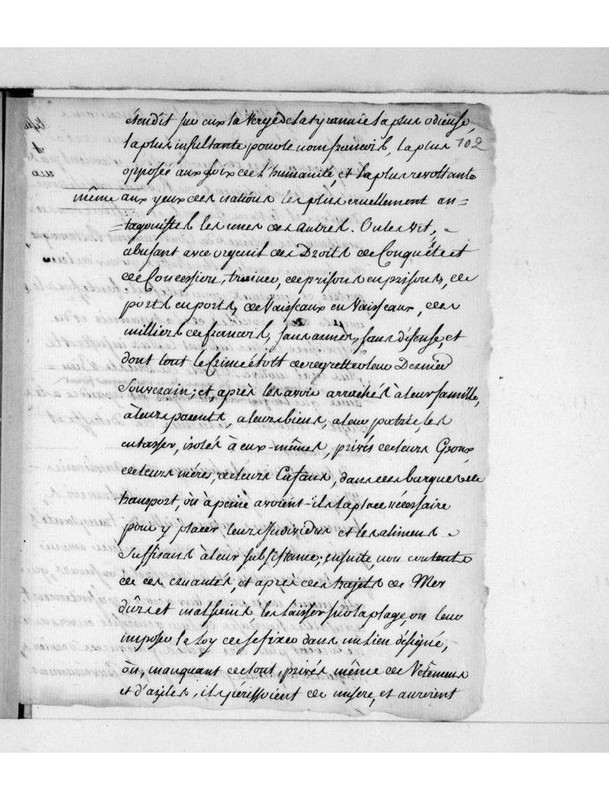 étendit sur eux la verge de la tyrannie la plus odieuse,
la plus insultante pour le nom françois, la plus
102
opposée aux loix de l'humanité, et la plus revoltante
même aux yeux des nations les plus cruellement an-
tagonistes les unes des autres. On les vit,
abusant avec orgueil des Droits de Conquête et
de Concession, trainer, de prisons en prisons, de
ports en ports, de Vaisseaux en Vaisseaux, des
milliers de françois, sans armes, sans défense, et
dont tout le crime étoit de regretter leur Dernier
Souverain; et, après les avoir arrachés à leur famille,
à leurs parents, à leurs biens, à leur patrie les
entasser, isolés à eux-mêmes, privés de leurs Epoux,
de leurs mères, de leurs Enfans, dans des barques de
transport, où à peine avoient-ils la place nécessaire
pour y placer leurs individus et les alimens
Suffisans à leur subsistance; ensuite, non contents
de ces cruautés, et après des trajets de Mer
durs et malsains les laisser sur la plage, ou leur
imposer la Loy de se fixer dans un lieu désigné,
où, manquant de tout, privés même de Vetemens
et d'aziles, ils périssoient de misère, et auroient